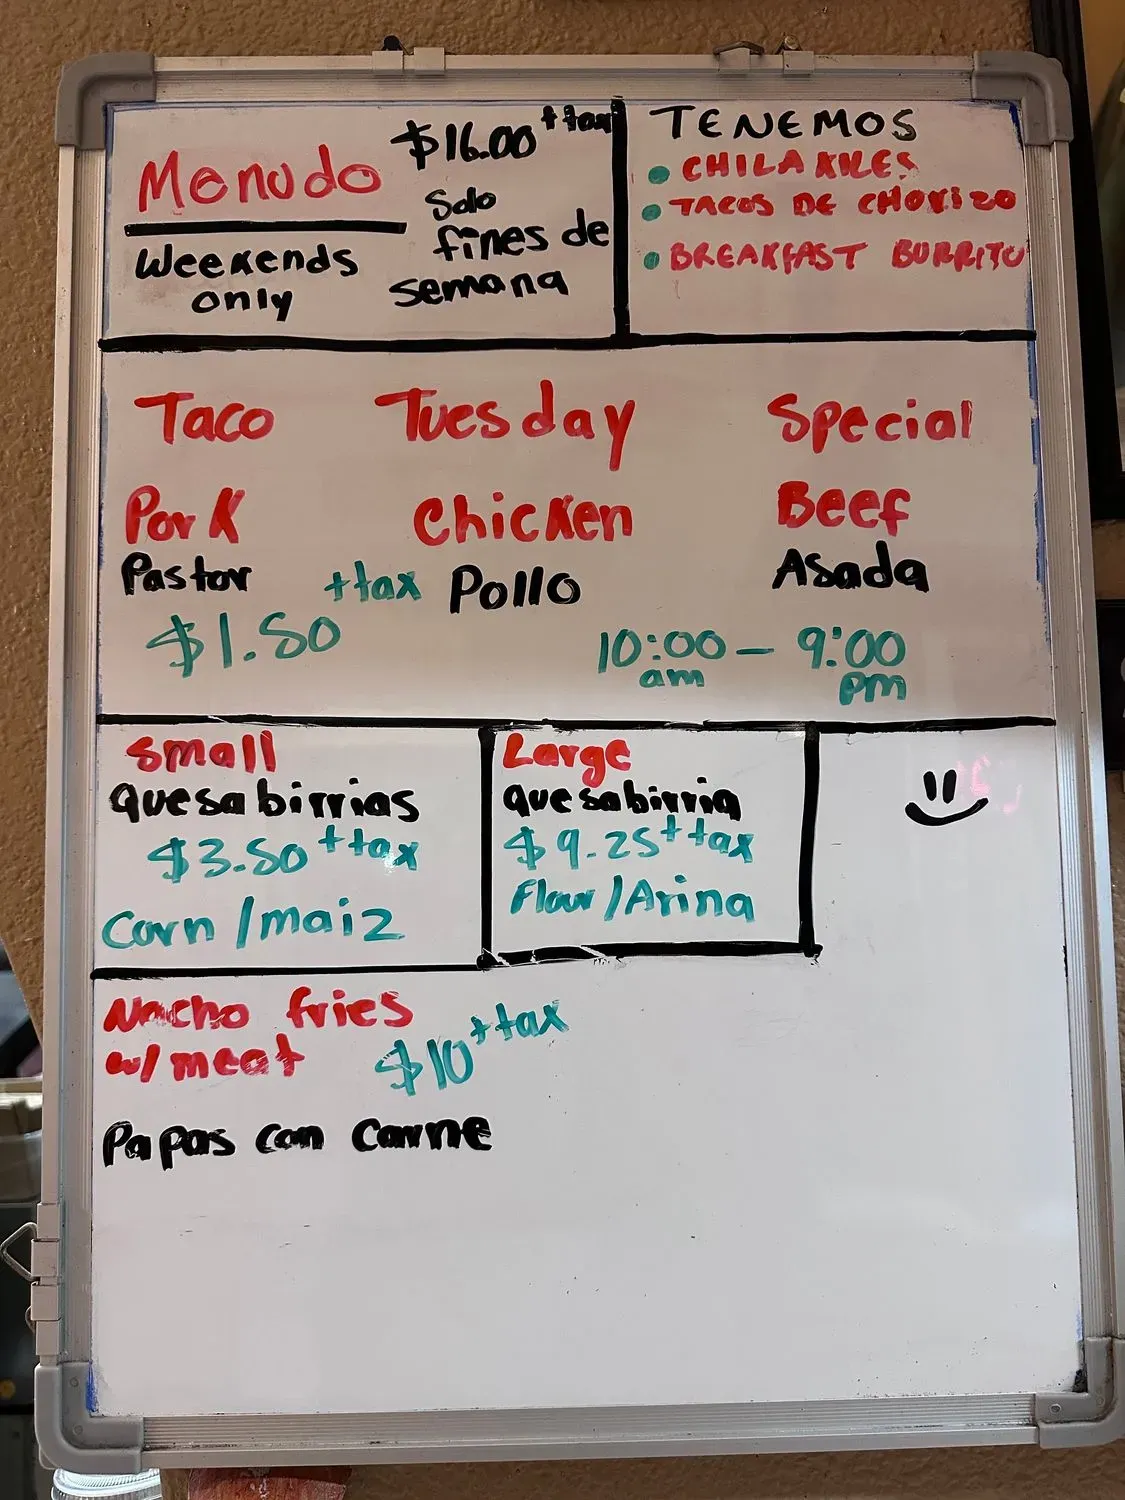 Menudo
$16.00 + tax
Weekends
only
Solo
fines de
semana
TENEMOS
• CHILAKILES
• TACOS DE CHORIZO
• BREAKFAST BURRITO
Taco Tuesday Special
Pork Chicken Beef
Pastor Pollo Asada
$1.50 + tax
10:00 am — 9:00 pm
Small
quesabirrias
$3.50 + tax
Corn / maiz
Large
quesabirria
$9.25 + tax
Flour / Arina
Nacho fries
w/ meat $10 + tax
Papas con carne